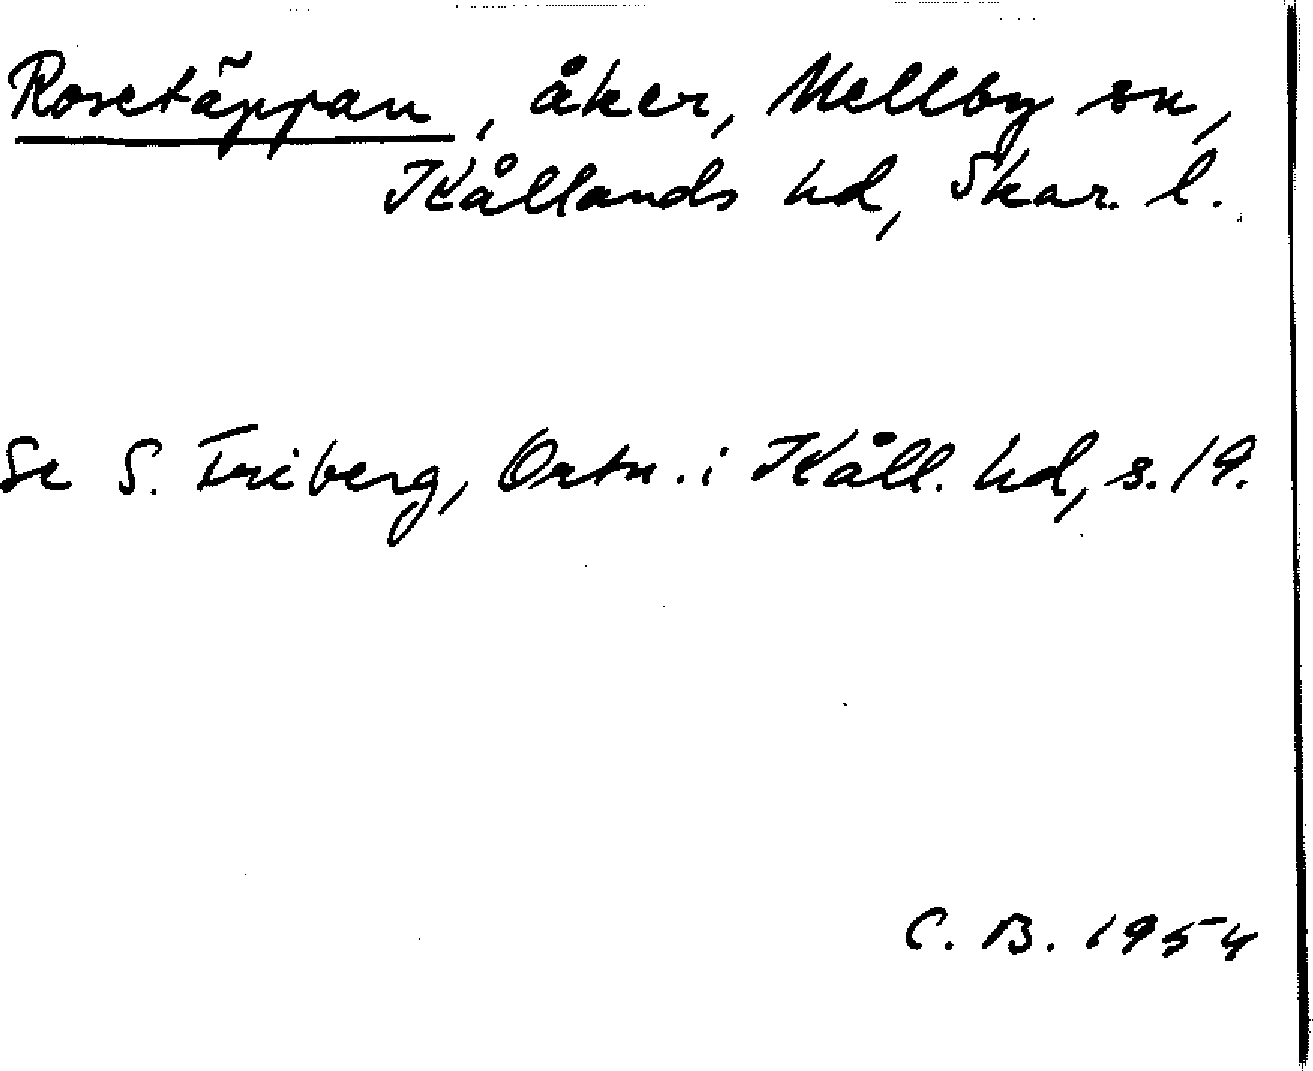 Rosetäppan, åker, Mellby sn,
Kållands hd, Skar. l.
Se S. Friberg, Ortn. i Kåll. hd, s. 19.
C. B. 1954